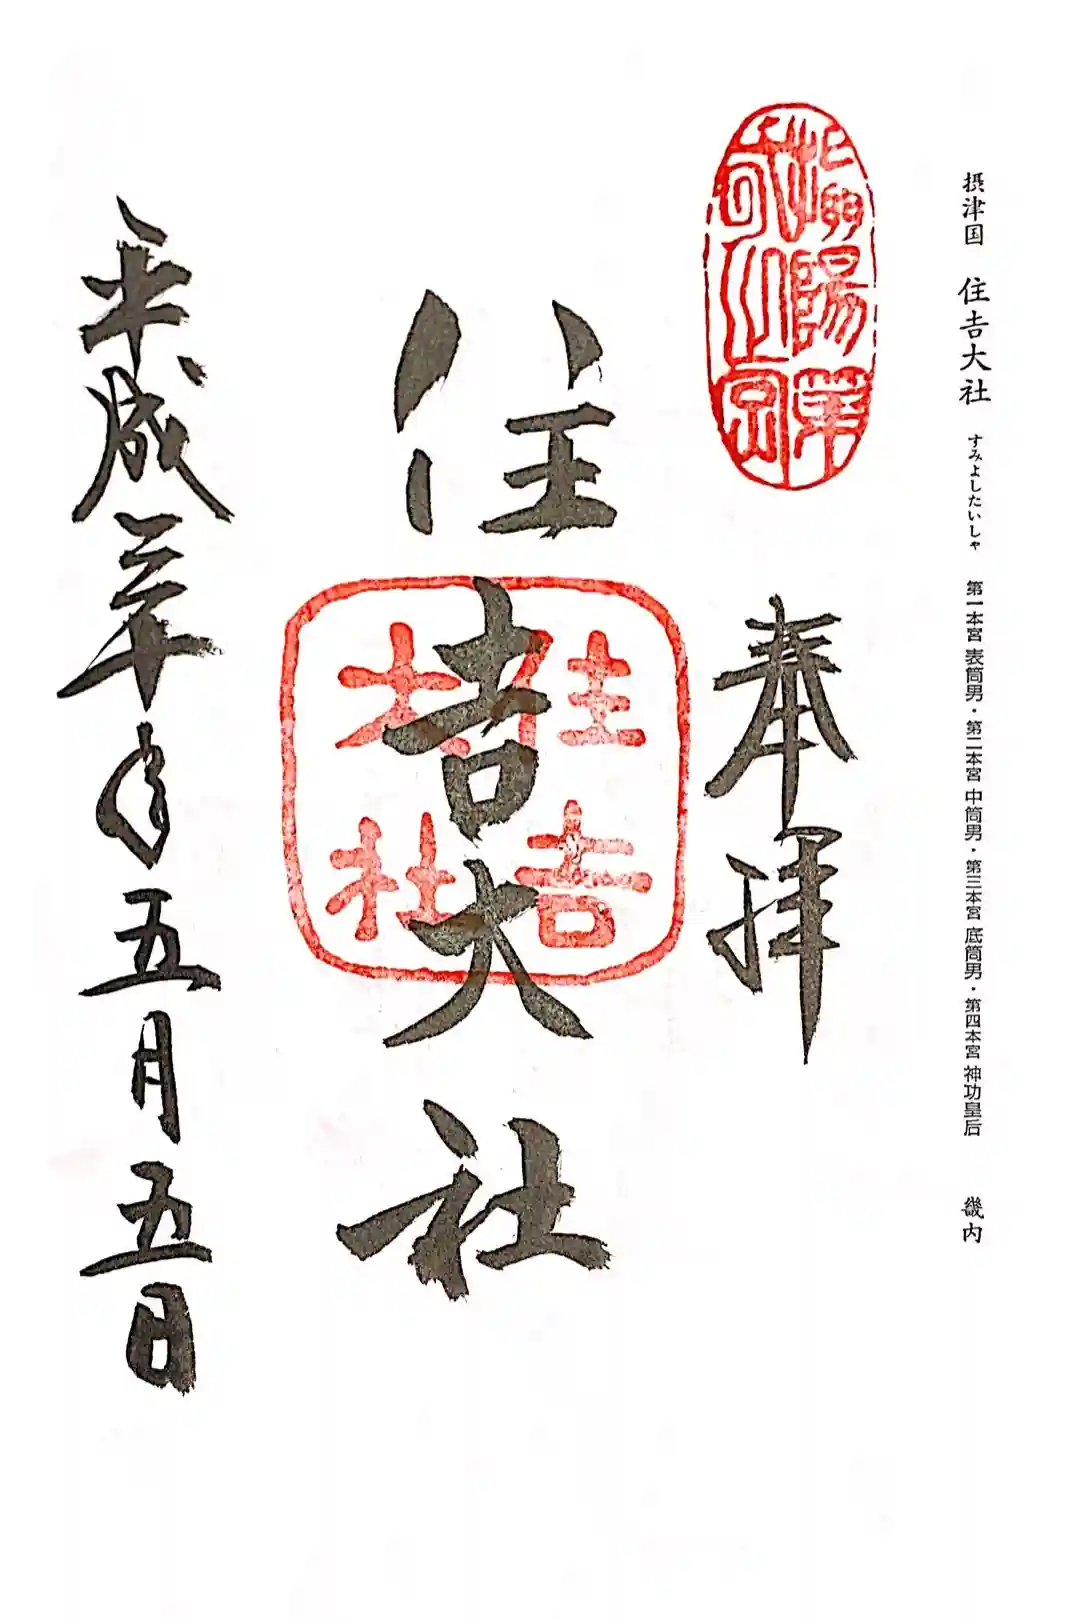 摂津国 住吉大社 すみよしたいしゃ 第一本宮 表筒男・第二本宮 中筒男・第三本宮 底筒男・第四本宮 神功皇后 畿内
奉拝
住吉大社
住吉
大社
平成三十年五月五日